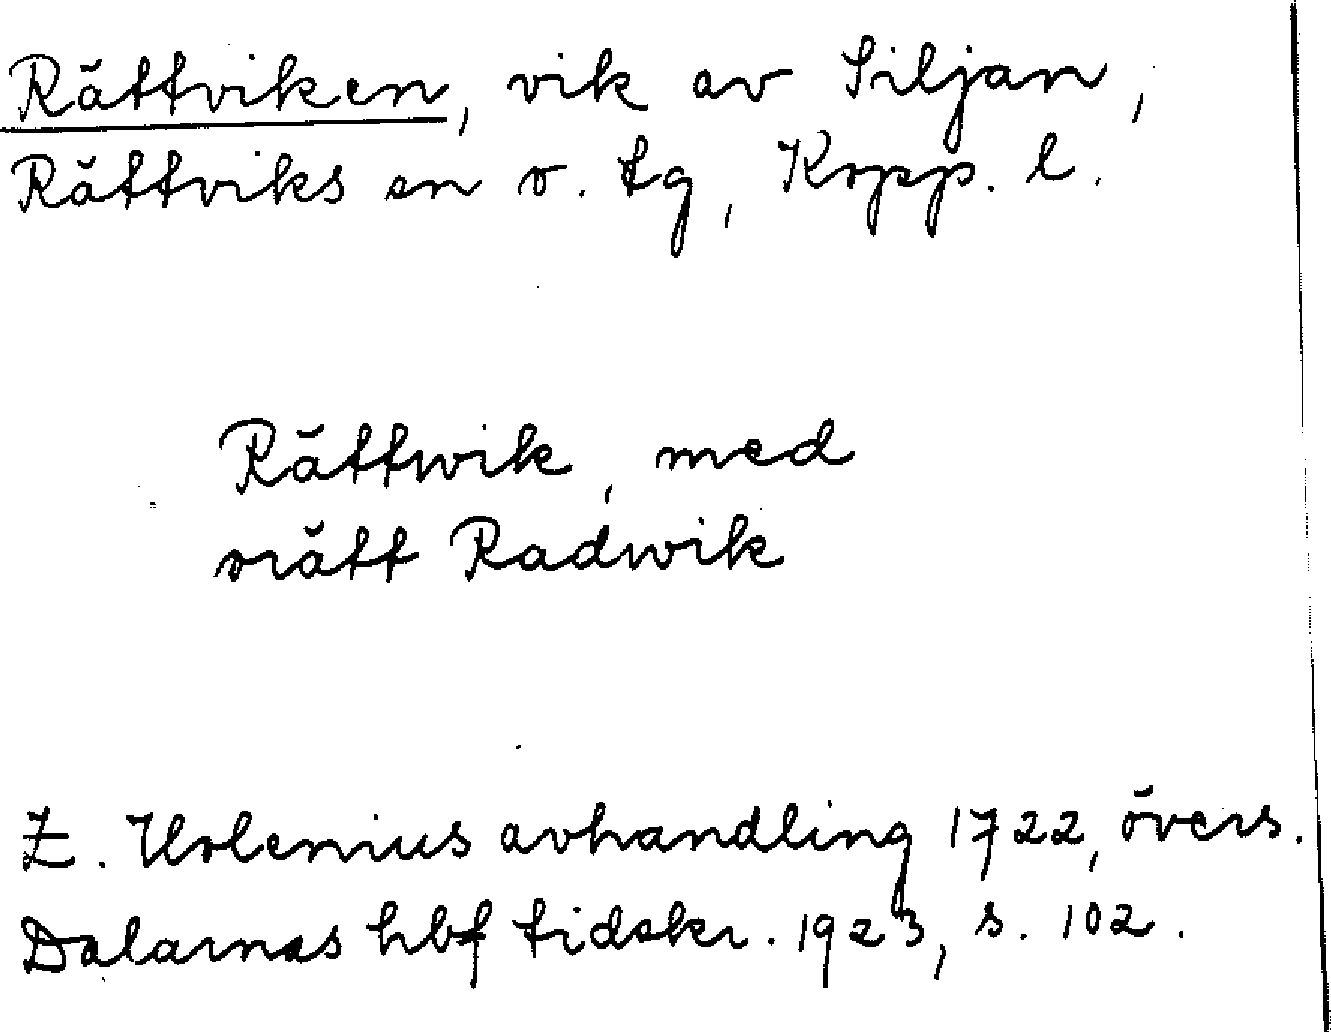 Rättviken, vik av Siljan,
Rättviks sn o. tg, Kopp. l.
Rättwik, med
orätt Radwik
Z. Holenius avhandling 1722, övers.
Dalarnas hbf tidskr. 1923, s. 102.